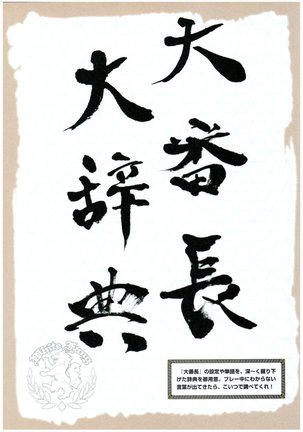 大番長
大辞典
『大番長』の設定や単語を、深〜く掘り下
げた辞典を御用意。プレー中にわからない
言葉が出てきたら、こいつで調べてくれ!